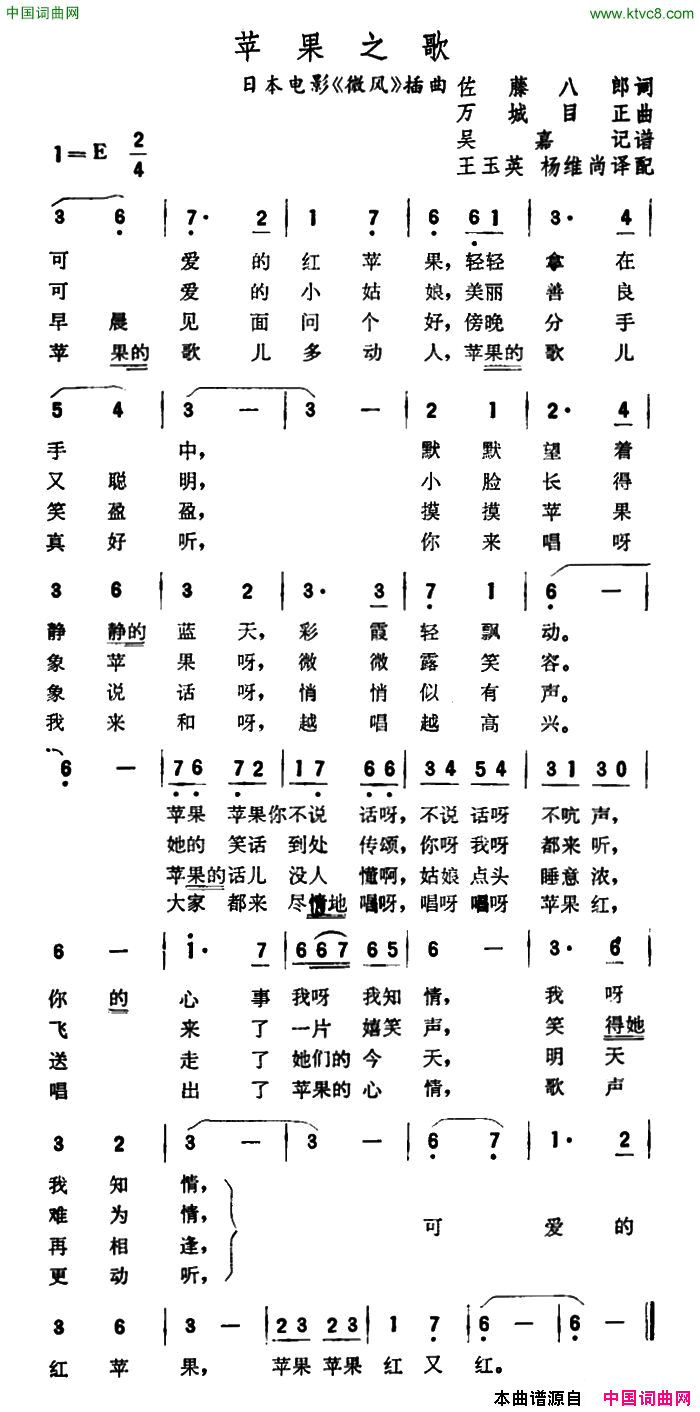 中国词曲网
www.ktvc8.com
苹果之歌
日本电影《微风》插曲 佐藤八郎词
万城目正曲
吴嘉记谱
王玉英 杨维尚译配
1=E 2/4
3 6 | 7· 2 | 1 7 | 6 61 | 3· 4 |
可 爱的红苹果，轻轻拿在
可 爱的小姑娘，美丽善良
早晨见面问个好，傍晚分手
苹果的歌儿多动人，苹果的歌儿
5 4 | 3 — | 3 — | 2 1 | 2· 4 |
手中， 默默望着
又聪明， 小脸长得
笑盈盈， 摸摸苹果
真好听， 你来唱呀
3 6 | 3 2 | 3· 3 | 7 1 | 6 — |
静静的蓝天，彩霞轻飘动。
象苹果呀，微微露笑容。
象说话呀，悄悄似有声。
我来和呀，越唱越高兴。
6 — | 76 72 | 17 66 | 34 54 | 31 30 |
苹果 苹果你不说话呀，不说话呀 不吭声，
她的 笑话 到处 传颂，你呀我呀 都来听，
苹果的话儿 没人 懂啊，姑娘点头 睡意浓，
大家 都来 尽情地 唱呀，唱呀唱呀 苹果红，
6 — | 1· 7 | 667 65 | 6 — | 3· 6 |
你的心事我呀 我知情， 我呀
飞来了一片 嬉笑声， 笑得她
送走了她们的今天， 明天
唱出了苹果的心情， 歌声
3 2 | 3 — | 3 — | 6 7 | 1· 2 |
我知情，
难为情，
可爱的
再相逢，
更动听，
3 6 | 3 — | 23 23 | 1 7 | 6 — | 6 — ‖
红苹果， 苹果 苹果 红又红。
本曲谱源自 中国词曲网